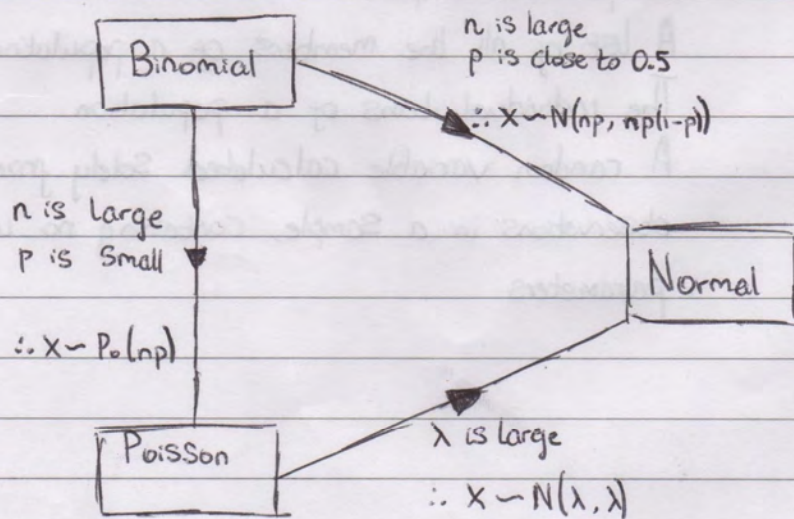 Binomial
n is large
p is close to 0.5
∴ X ~ N(np, np(1-p))
n is large
p is small
∴ X ~ Po(np)
Normal
Poisson
λ is large
∴ X ~ N(λ, λ)